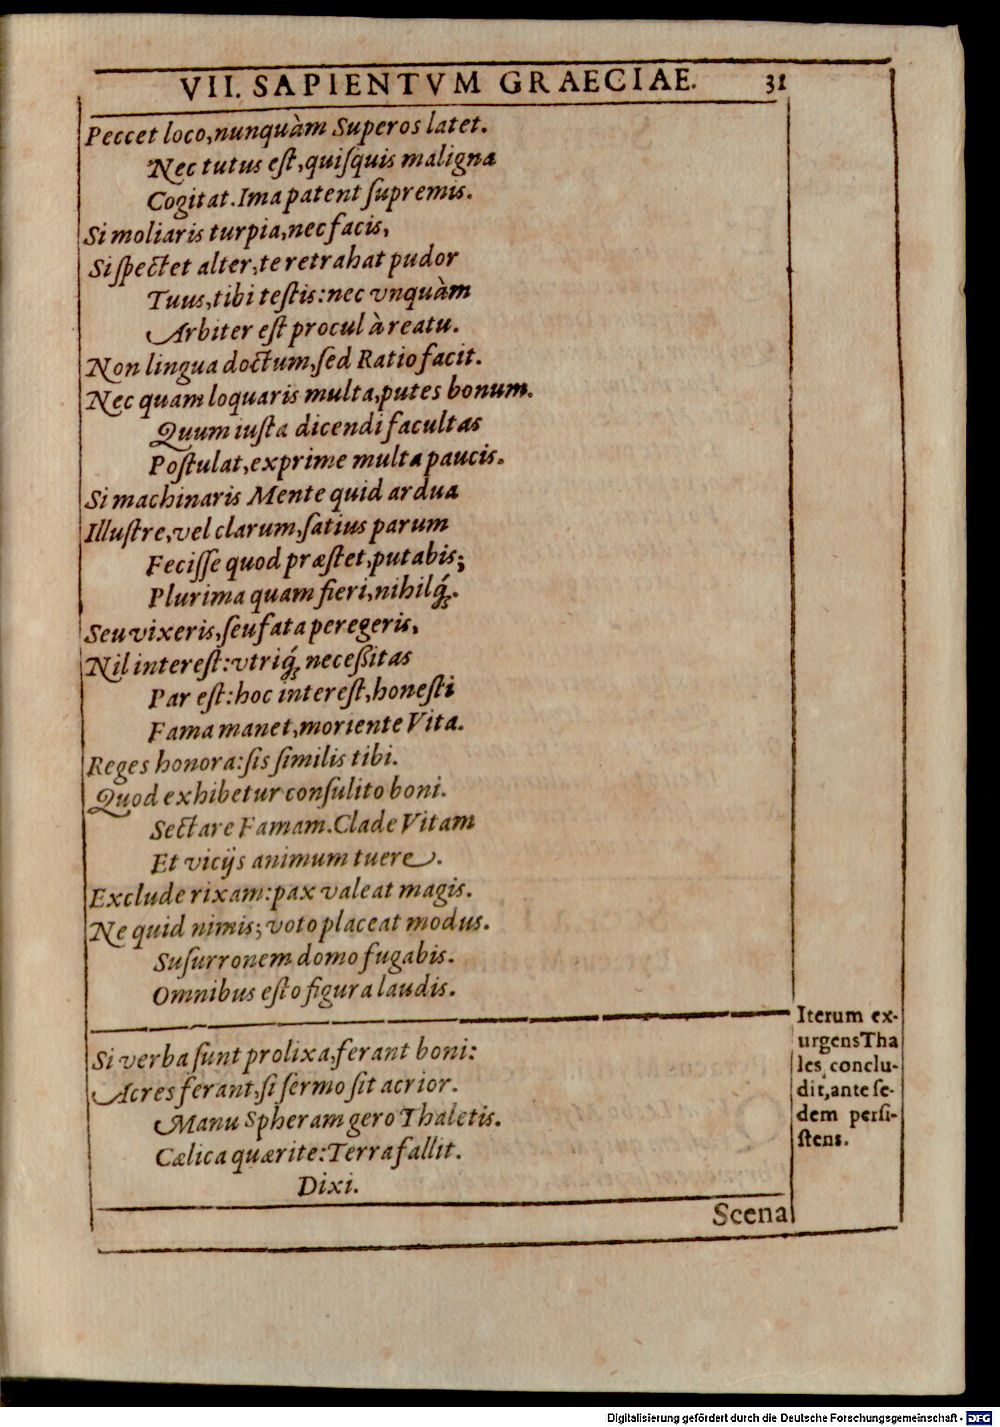 VII. SAPIENTVM GRAECIAE. 31
Peccet loco, nunquàm Superos latet.
Nec tutus eſt, quiſquis maligna
Cogitat. Ima patent ſupremis.
Si moliaris turpia, nec facis,
Si ſpectet alter, te retrahat pudor
Tuus, tibi teſtis: nec vnquàm
Arbiter eſt procul à reatu.
Non lingua doctum, ſed Ratio facit.
Nec quam loquaris multa, putes bonum.
Quum iuſta dicendi facultas
Poſtulat, exprime multa paucis.
Si machinaris Mente quid ardua
Illuſtre, vel clarum, ſatius parum
Feciſſe quod præſtet, putabis;
Plurima quam fieri, nihilq́;.
Seu vixeris, ſeu fata peregeris,
Nil intereſt: vtriq́; neceßitas
Par eſt: hoc intereſt, honeſti
Fama manet, moriente Vita.
Reges honora: ſis ſimilis tibi.
Quod exhibetur conſulito boni.
Sectare Famam. Clade Vitam
Et vicijs animum tuere.
Exclude rixam: pax valeat magis.
Ne quid nimis; voto placeat modus.
Suſurronem domo fugabis.
Omnibus eſto figura laudis.
Si verba ſunt prolixa, ferant boni:
Acres ferant, ſi ſermo ſit acrior.
Manu Spheram gero Thaletis.
Cælica quærite: Terra fallit.
Dixi.
Iterum ex-
urgens Tha
les conclu-
dit, ante ſe-
dem perſi-
ſtens.
Scena
Digitalisierung gefördert durch die Deutsche Forschungsgemeinschaft - DFG